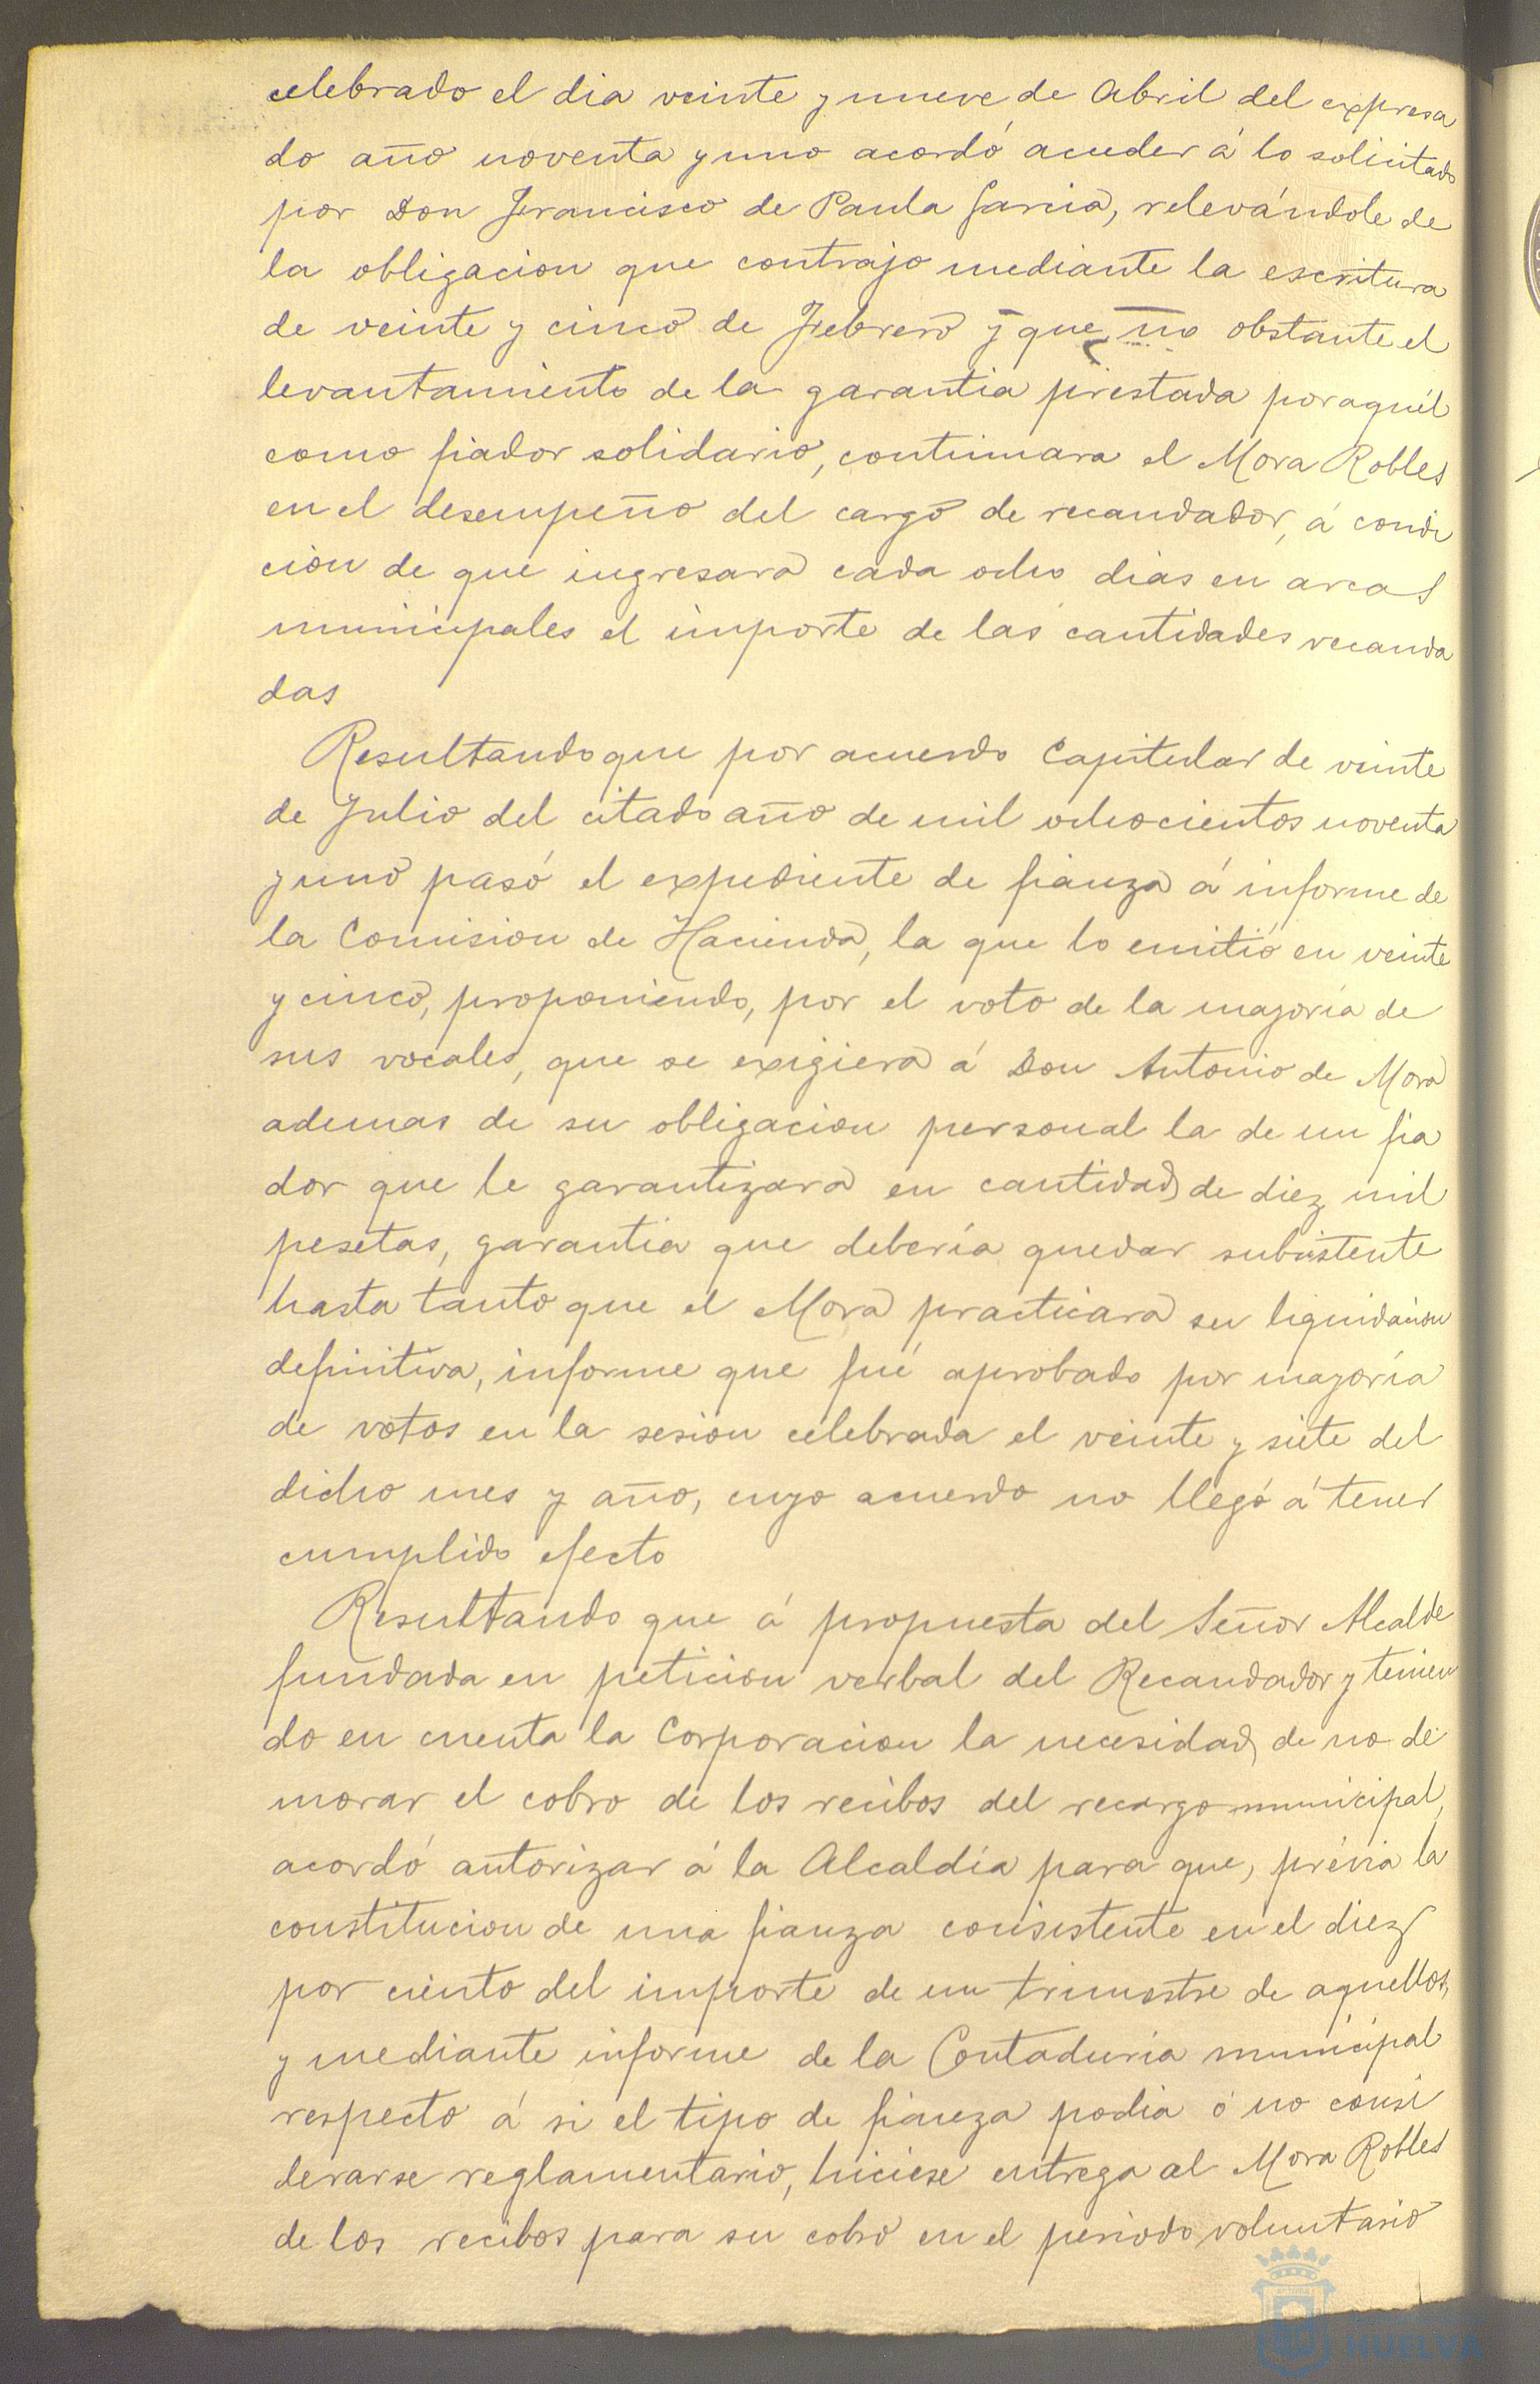 celebrado el dia veinte y nueve de Abril del expresa
do año noventa y uno acordó acceder á lo solicitado
por Don Francisco de Paula Garcia, relevándole de
la obligacion que contrajo mediante la escritura
de veinte y cinco de Febrero y que, no obstante el
levantamiento de la garantia prestada por aquél
como fiador solidario, continuara el Mora Robles
en el desempeño del cargo de recaudador, á condi
cion de que ingresara cada ocho dias en arcas
municipales el importe de las cantidades recauda
das
Resultando que por acuerdo Capitular de veinte
de Julio del citado año de mil ochocientos noventa
y uno pasó el expediente de fianza á informe de
la Comision de Hacienda, la que lo emitió en veinte
y cinco, proponiendo, por el voto de la mayoría de
sus vocales, que se exigiera á Don Antonio de Mora
ademas de su obligacion personal la de un fia
dor que le garantizara en cantidad de diez mil
pesetas, garantia que debería quedar subsistente
hasta tanto que el Mora practicara su liquidacion
definitiva, informe que fué aprobado por mayoría
de votos en la sesion celebrada el veinte y siete del
dicho mes y año, cuyo acuerdo no llegó á tener
cumplido efecto
Resultando que á propuesta del Señor Alcalde
fundada en peticion verbal del Recaudador y tenien
do en cuenta la Corporacion la necesidad de no de
morar el cobro de los recibos del recargo municipal,
acordó autorizar á la Alcaldía para que, prévia la
constitucion de una fianza consistente en el diez
por ciento del importe de un trimestre de aquellos,
y mediante informe de la Contaduría municipal
respecto á si el tipo de fianza podia ó no consi
derarse reglamentario, hiciese entrega al Mora Robles
de los recibos para su cobro en el periodo voluntario
HUELVA